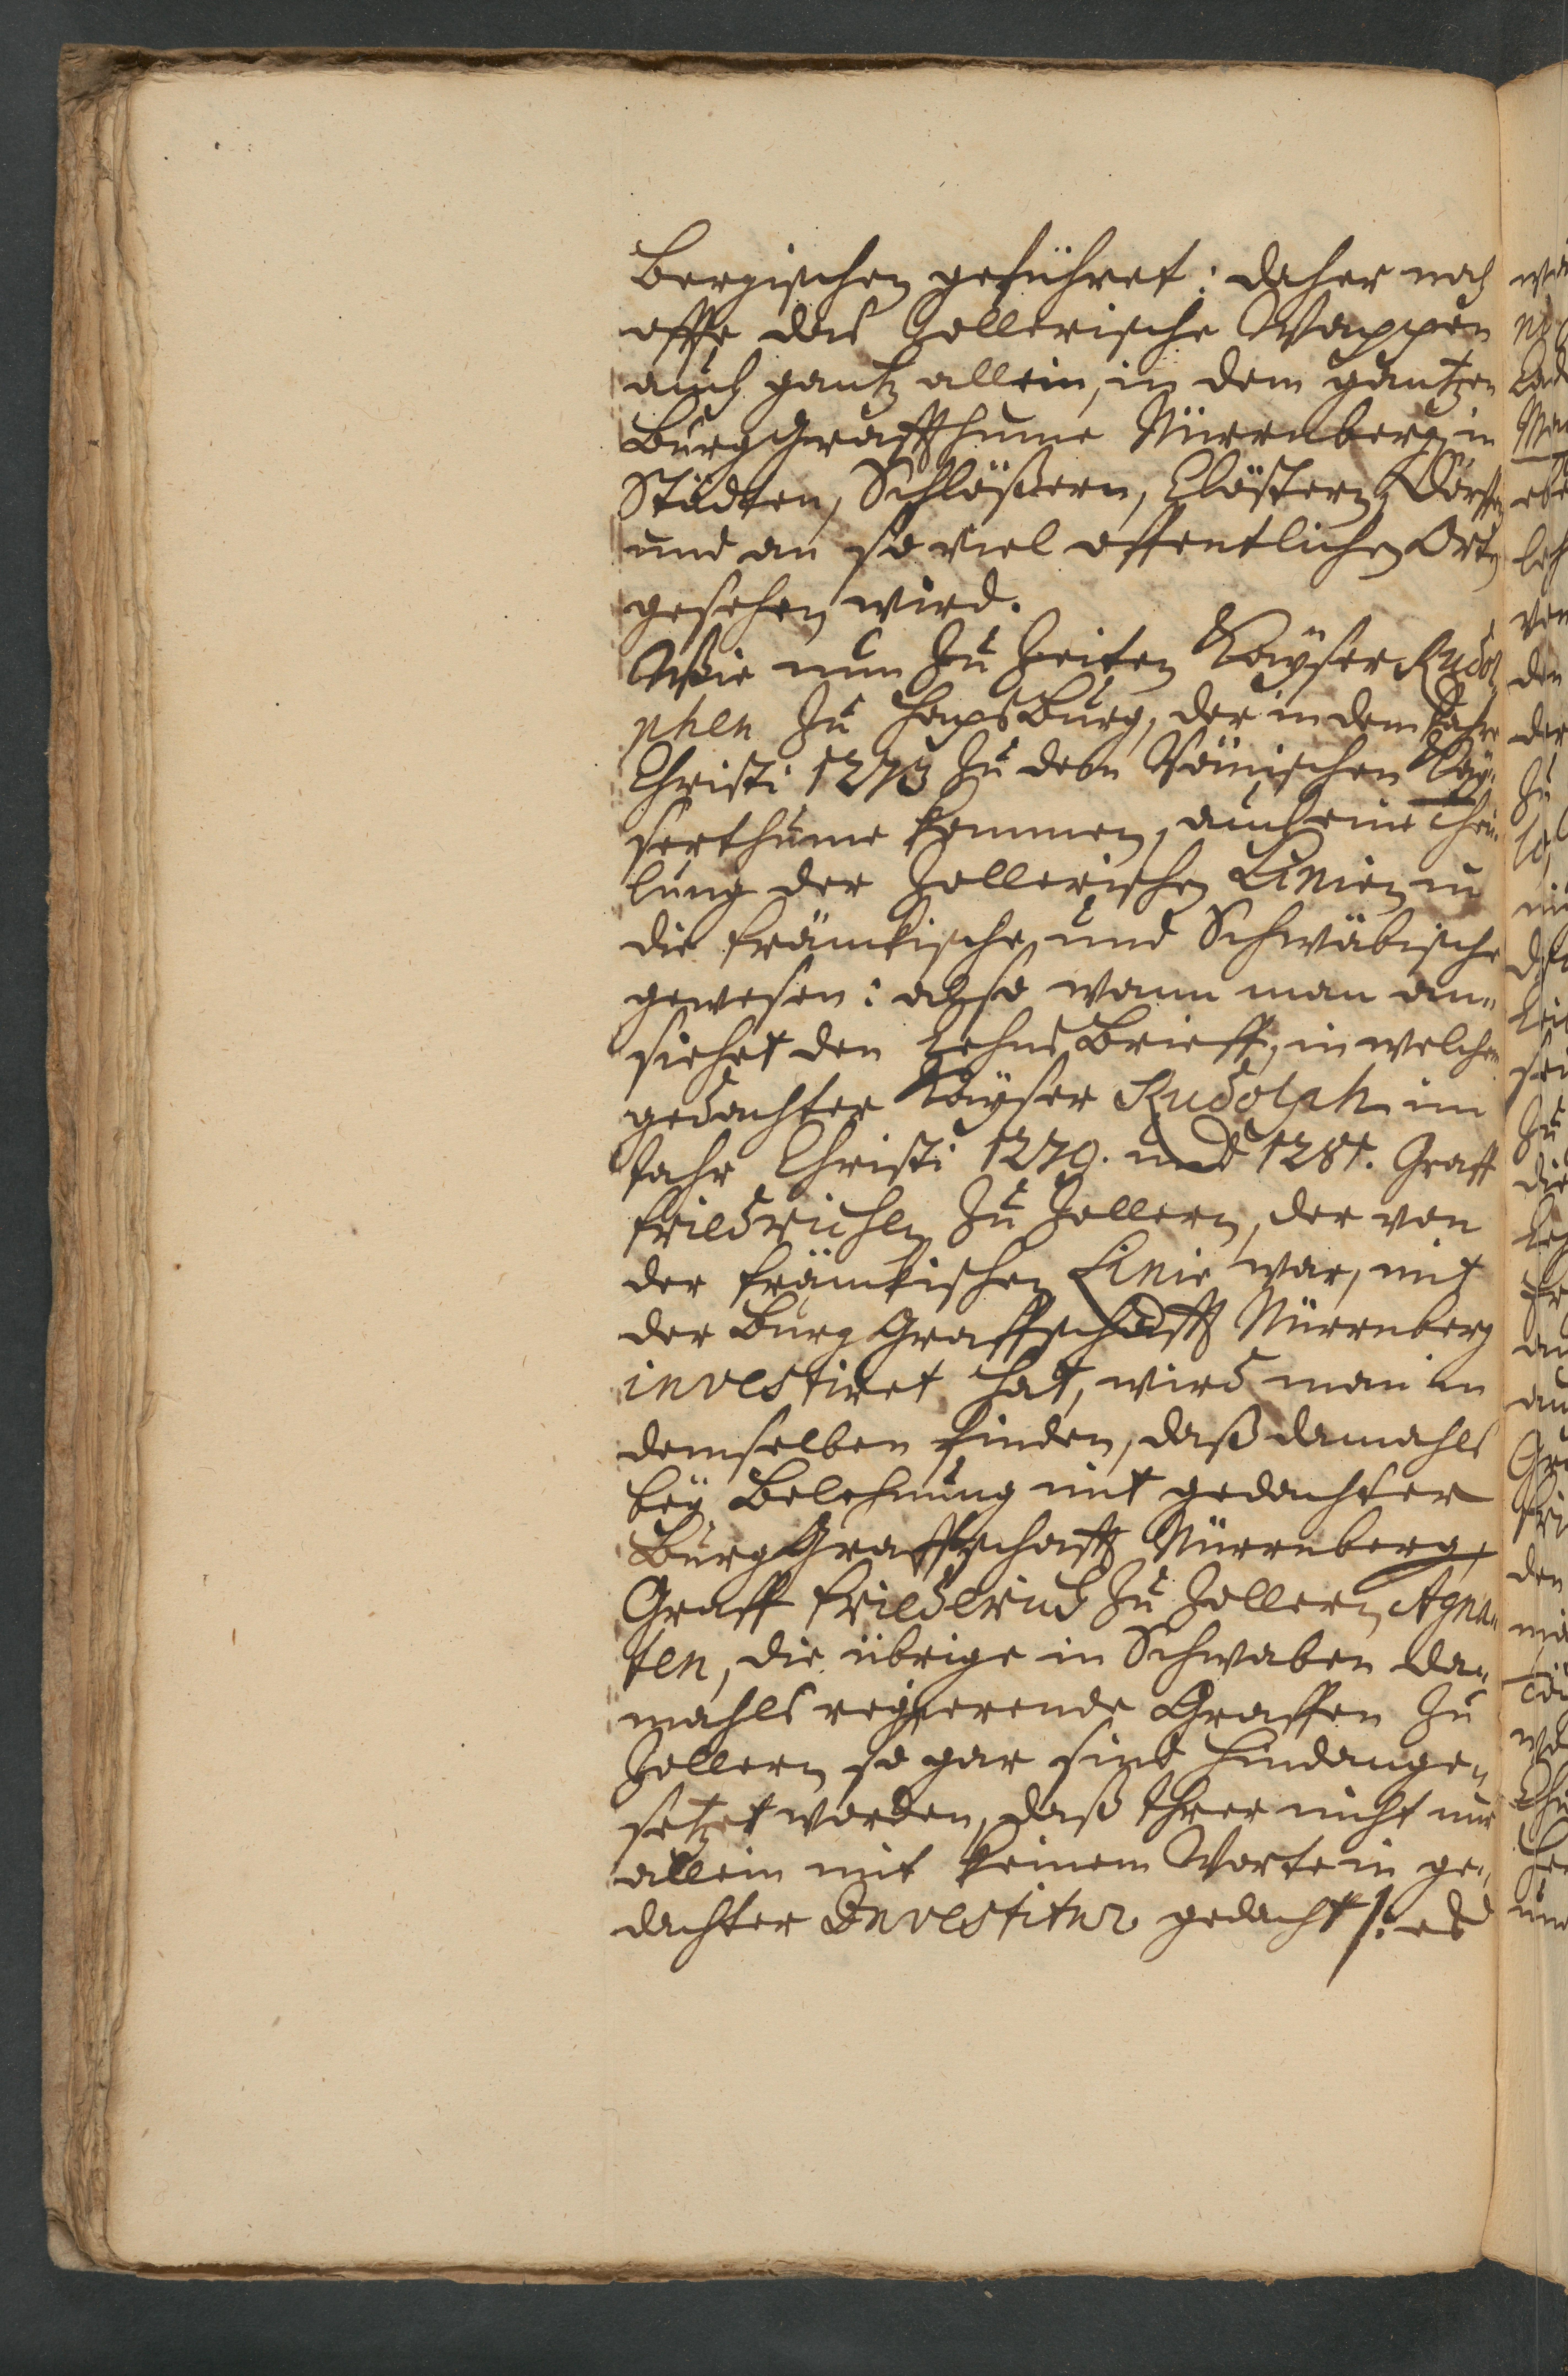 bergischen geführet: daher noch
offt das Zollerische Wappen
auch gantz allein, in dem gantzen
BurgGraffthume Nürnberg, in
Städten, Schlößern, Clöstern, Dörffern
und an so viel offentlichen Orten
gesehen wird.
Wie nun zu Zeiten Kayser Rudol
phen zu HapsBurg, der in dem Jahr
Christi 1273 zu dem Römischen Kay-
serthume kommen, auch eine Thei-
lung der Zollerischen Linien in
die fränkische und Schwäbische
gewesen: also wann man an-
siehet den LehnsBrieff, in welchen
gedachter Kayser Rudolph im
Jahr Christi 1279. und 1281. Graff
Friedrichen zu Zollern, der von
der fränkischen Linie war, mit
der BurgGraffschafft Nürnberg
investiret hat, wird man in
demselben finden, daß damahls
bey Belehnung mit gedachter
BurgGraffschafft Nürnberg,
Graff Friederich zu Zollern Agna-
ten, die übrige in Schwaben da-
mahls regierende Graffen zu
Zollern so gar sind hindange-
setzet worden, daß Ihrer nicht nur
allein mit keinem Worte in ge-
dachter Investitur gedacht /: es